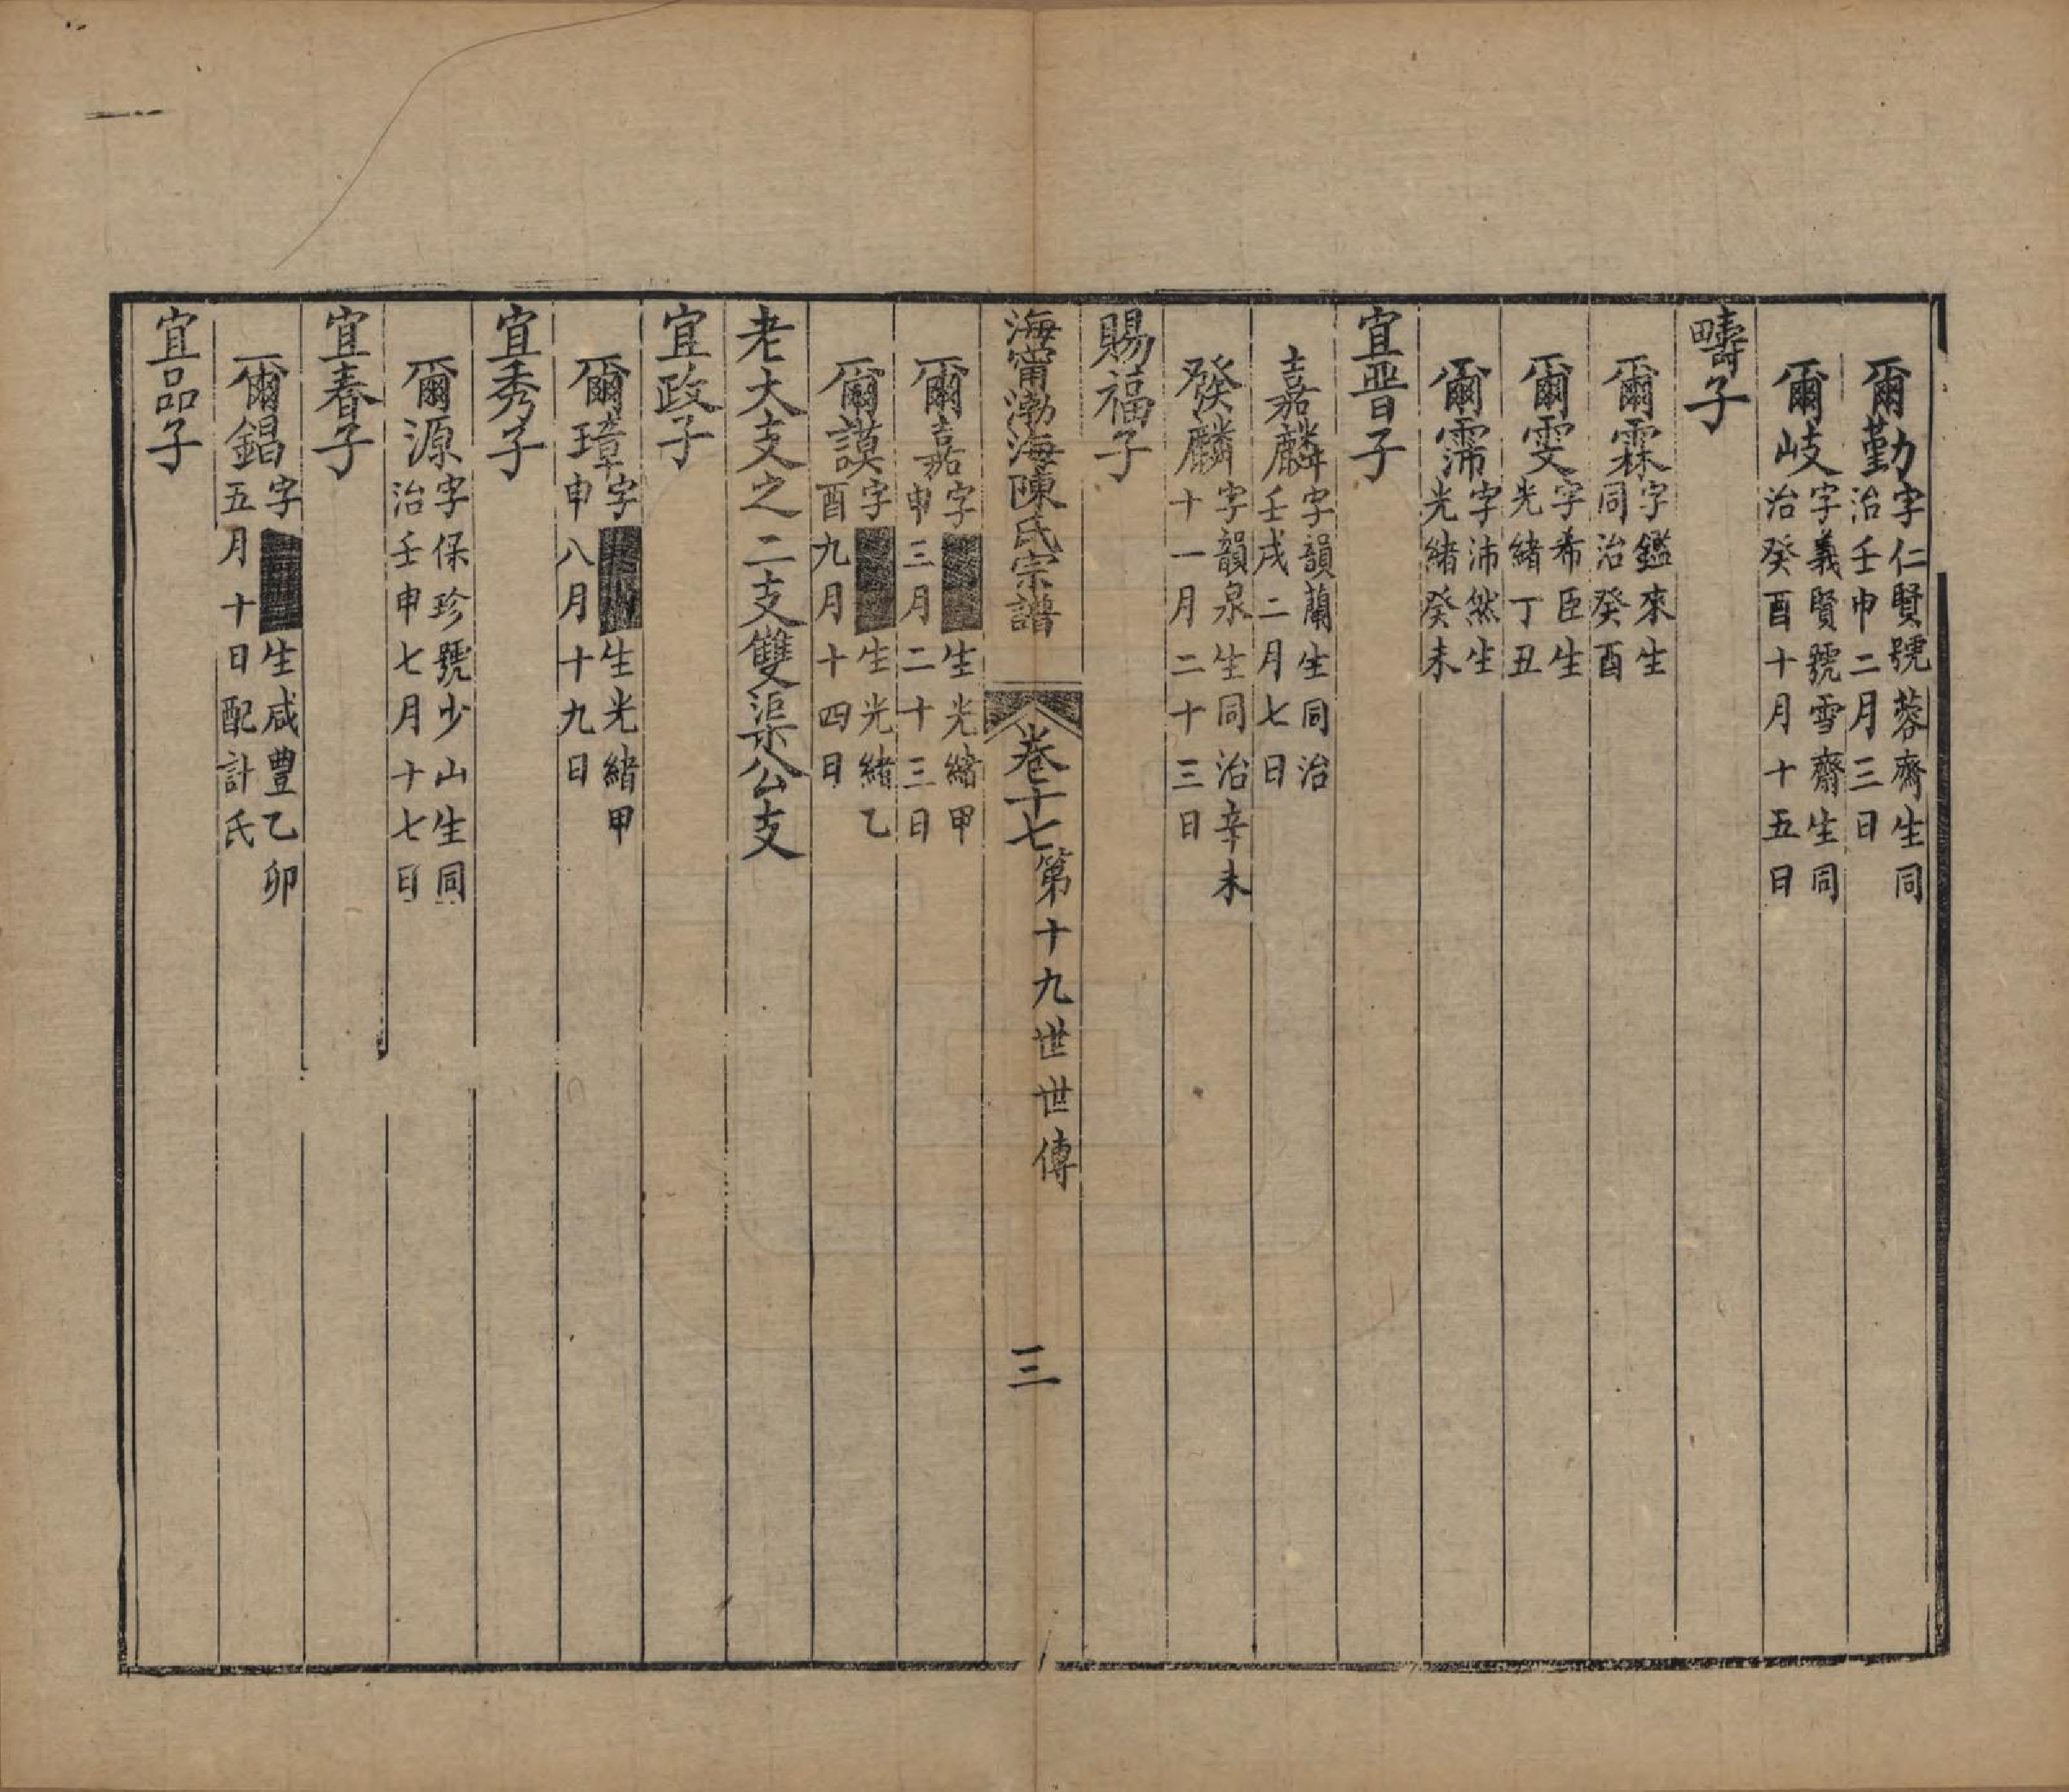 爾勤字仁賢號蓉齋生同治壬申二月三日
爾岐字義賢號雪齋生同治癸酉十月十五日
疇子
爾霖字鑑來生同治癸酉
爾雯字希臣生光緒丁丑
爾霈字沛然生光緒癸未
宜晋子
嘉麟字韻蘭生同治壬戌二月七日
發麟字韻泉生同治辛未十一月二十三日
賜福子
海甯渤海陳氏宗譜 卷十七 第十九世世傳 三
爾嘉字 生光緒甲申三月二十三日
爾謨字 生光緒乙酉九月十四日
老大支之二支雙渠公支
宜政子
爾璋字 生光緒甲申八月十九日
宜秀子
爾源字保珍號少山生同治壬申七月十七日
宜春子
爾錩字 生咸豐乙卯五月十日配計氏
宜品子